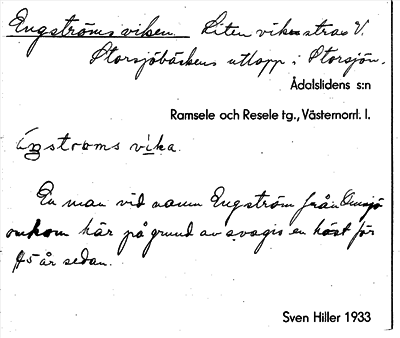 Engströmsviken. Liten vik strax V.
Storsjöbäckens utlopp i Storsjön.
Ådalslidens s:n
Ramsele och Resele tg., Västernorrl. l.
En man vid namn Engström från Omsjö
omkom här på grund av svagis en höst för
45 år sedan.
Sven Hiller 1933